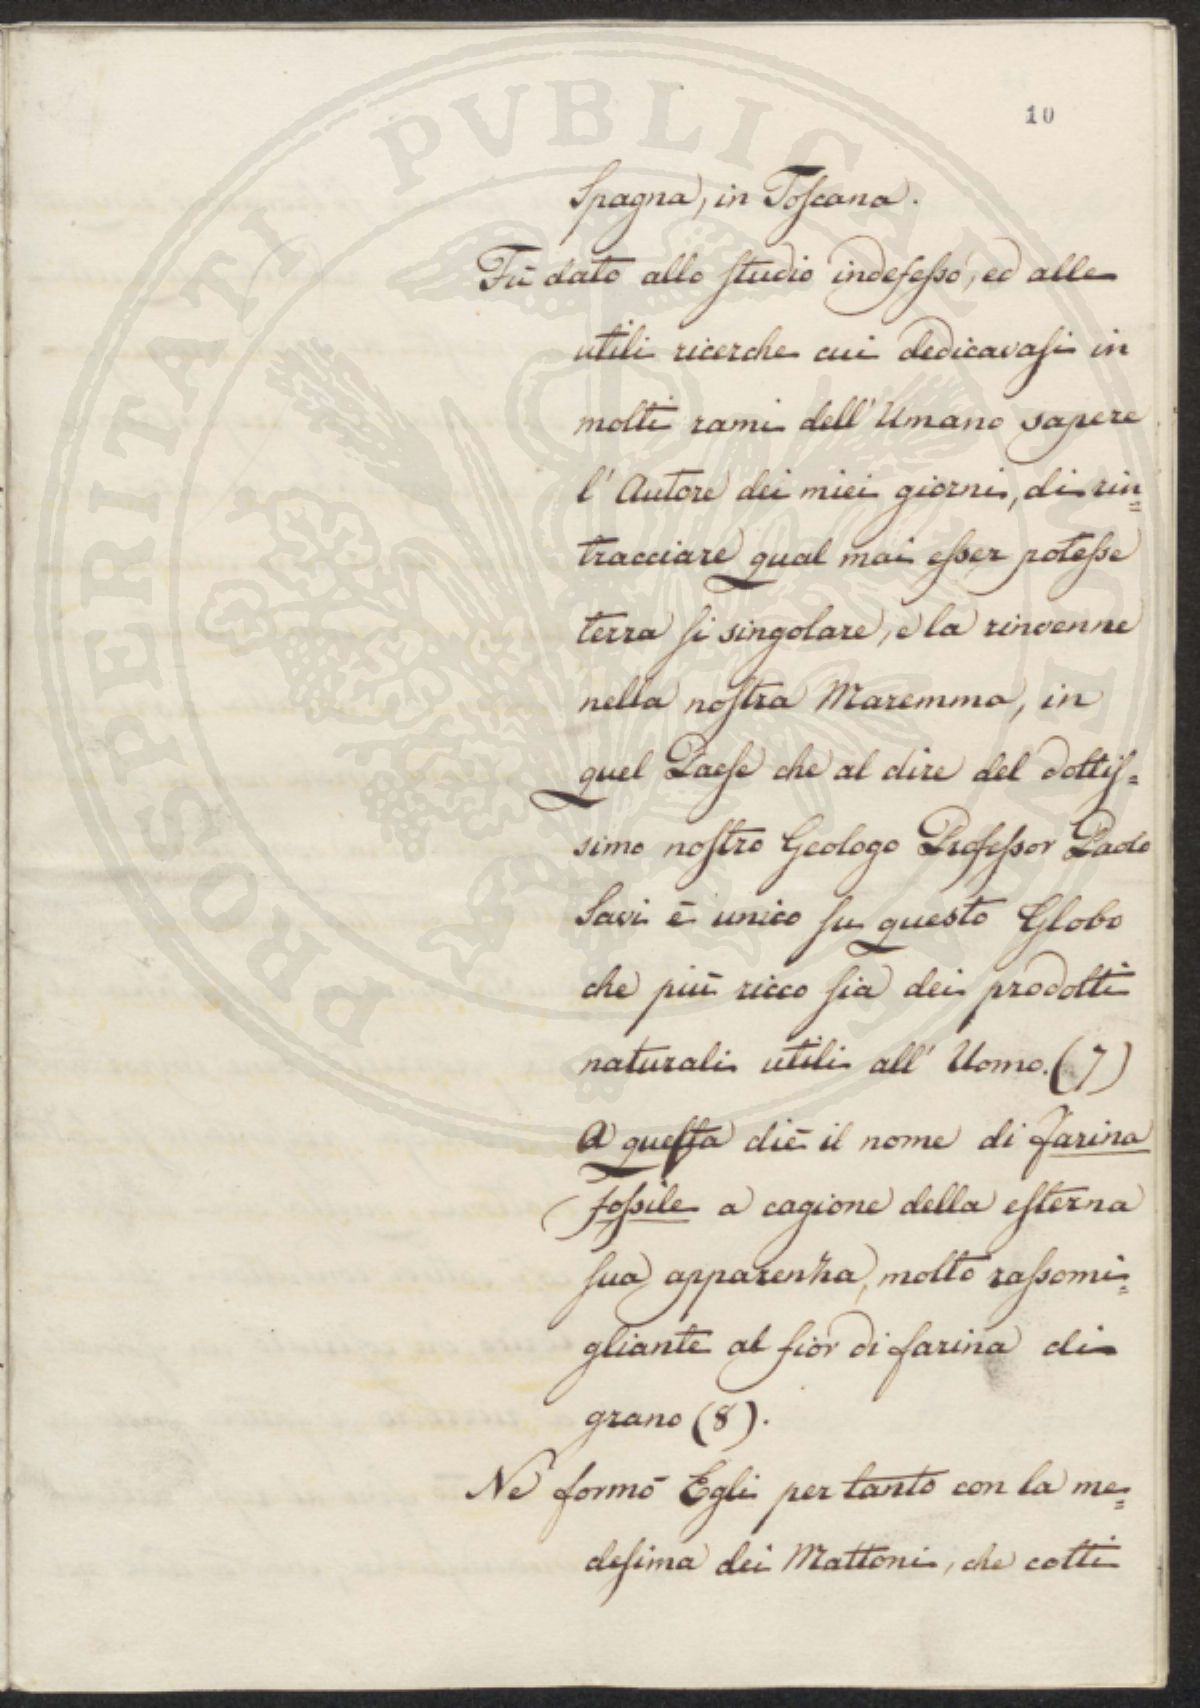 PROSPERITATI PVBLICAE
10
Spagna, in Toscana.
Fù dato allo studio indefesso, ed alle
utili ricerche cui dedicavasi in
molti rami dell' Umano sapere
l' Autore dei miei giorni, di rin=
tracciare qual mai esser potesse
terra si singolare, e la rinvenne
nella nostra Maremma, in
quel Paese che al dire del dottis=
simo nostro Geologo Professor Paolo
Savi è unico su questo Globo
che più ricco sia dei prodotti
naturali utili all' Uomo. (7)
A questa diè il nome di farina
fossile a cagione della esterna
sua apparenza, molto rassomi=
gliante al fior di farina di
grano (8).
Ne formò Egli per tanto con la me=
desima dei Mattoni, che cotti